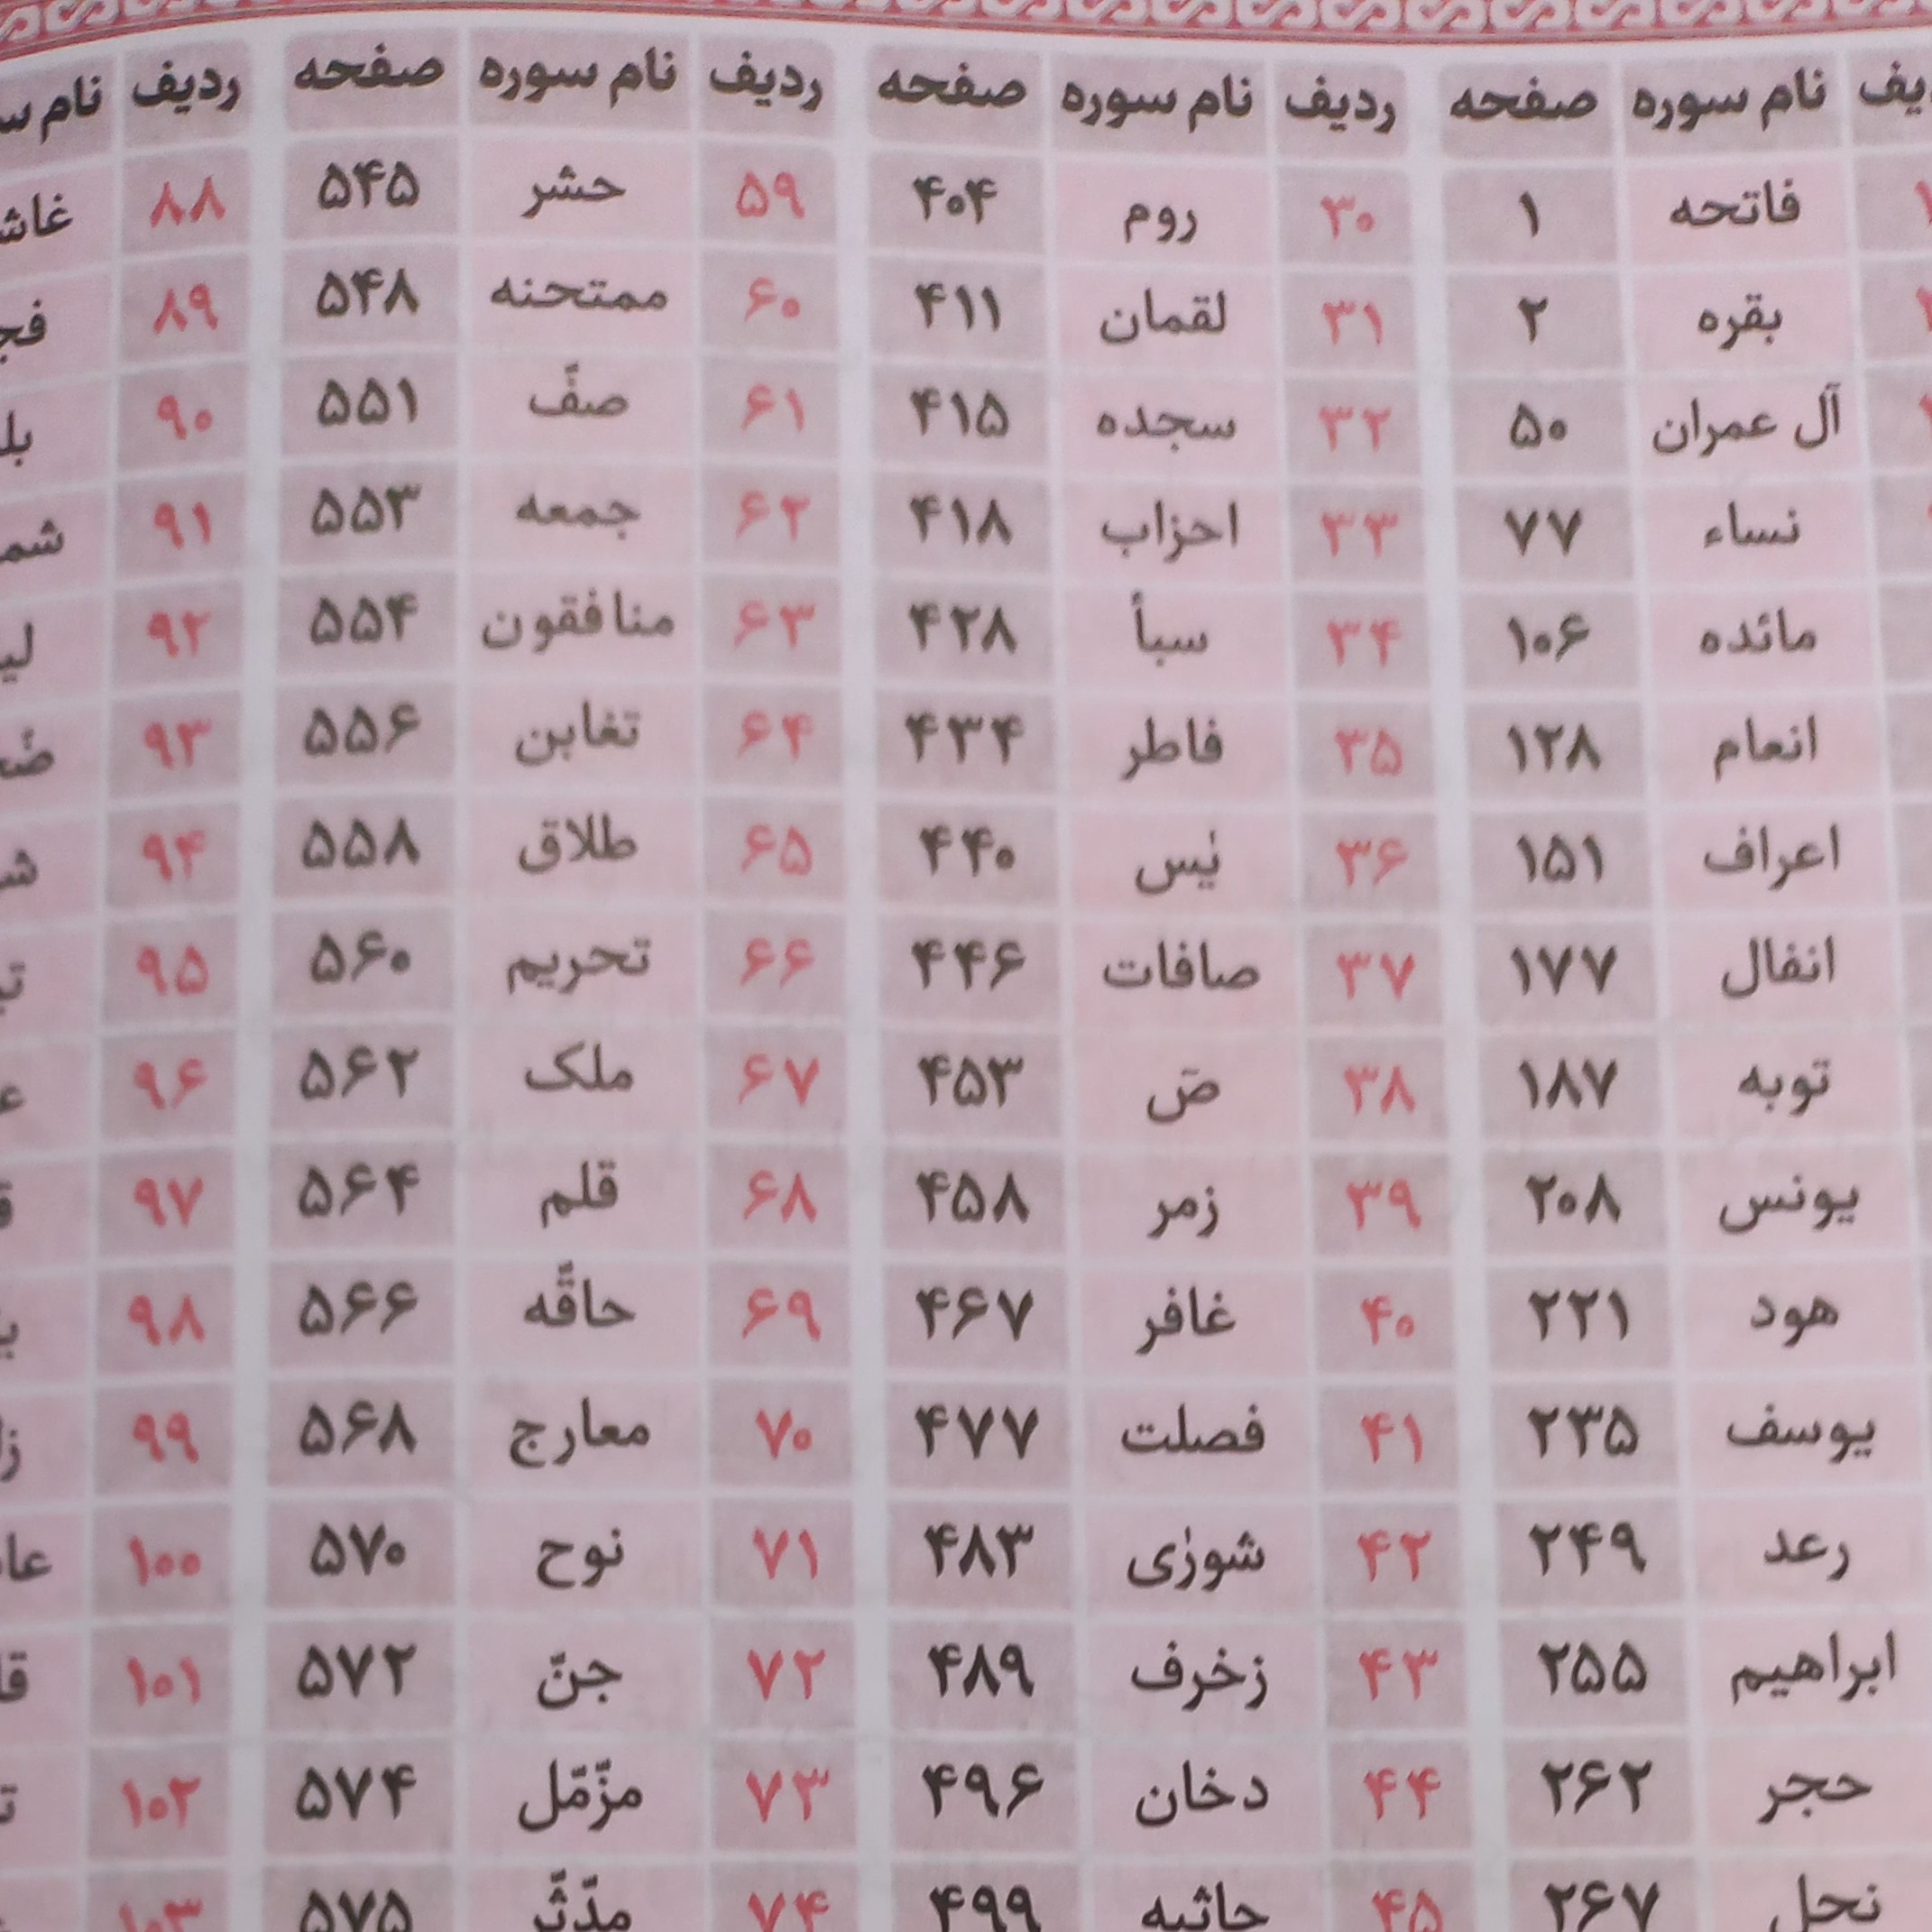 نام سوره صفحه ردیف نام سوره صفحه ردیف نام سوره صفحه ردیف نام
فاتحه ۱ ۳۰ روم ۴۰۴ ۵۹ حشر ۵۴۵ ۸۸
بقره ۲ ۳۱ لقمان ۴۱۱ ۶۰ ممتحنه ۵۴۸ ۸۹
آل عمران ۵۰ ۳۲ سجده ۴۱۵ ۶۱ صفّ ۵۵۱ ۹۰
نساء ۷۷ ۳۳ احزاب ۴۱۸ ۶۲ جمعه ۵۵۳ ۹۱
مائده ۱۰۶ ۳۴ سبأ ۴۲۸ ۶۳ منافقون ۵۵۴ ۹۲
انعام ۱۲۸ ۳۵ فاطر ۴۳۴ ۶۴ تغابن ۵۵۶ ۹۳
اعراف ۱۵۱ ۳۶ یٰس ۴۴۰ ۶۵ طلاق ۵۵۸ ۹۴
انفال ۱۷۷ ۳۷ صافات ۴۴۶ ۶۶ تحریم ۵۶۰ ۹۵
توبه ۱۸۷ ۳۸ صٓ ۴۵۳ ۶۷ ملک ۵۶۲ ۹۶
یونس ۲۰۸ ۳۹ زمر ۴۵۸ ۶۸ قلم ۵۶۴ ۹۷
هود ۲۲۱ ۴۰ غافر ۴۶۷ ۶۹ حاقّه ۵۶۶ ۹۸
یوسف ۲۳۵ ۴۱ فصلت ۴۷۷ ۷۰ معارج ۵۶۸ ۹۹
رعد ۲۴۹ ۴۲ شورٰی ۴۸۳ ۷۱ نوح ۵۷۰ ۱۰۰
ابراهیم ۲۵۵ ۴۳ زخرف ۴۸۹ ۷۲ جنّ ۵۷۲ ۱۰۱
حجر ۲۶۲ ۴۴ دخان ۴۹۶ ۷۳ مزّمّل ۵۷۴ ۱۰۲
نحل ۲۶۷ ۴۵ جاثیه ۴۹۹ ۷۴ مدّثّر ۵۷۵ ۱۰۳